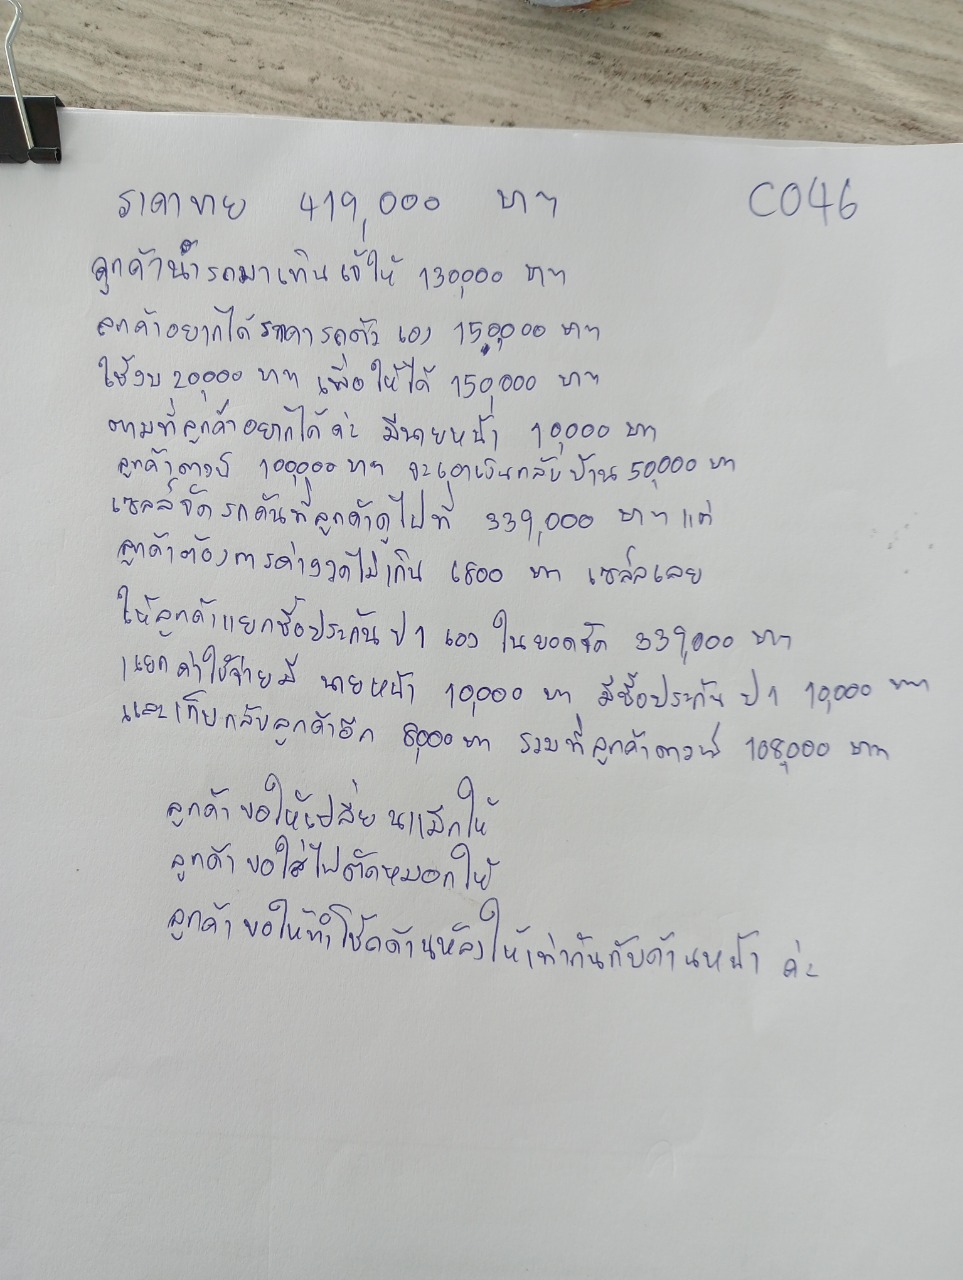 ราคาขาย 419,000 บาท C046
ลูกค้านำรถมาเทิน เจ้ให้ 130,000 บาท
ลูกค้าอยากได้ราคารถตัวเอง 150,000 บาท
ใช้งบ 20,000 บาท เพื่อให้ได้ 150,000 บาท
ตามที่ลูกค้าอยากได้ค่ะ มีนายหน้า 10,000 บาท
ลูกค้าดาวน์ 100,000 บาท จะเอาเงินกลับบ้าน 50,000 บาท
เซลล์จัดรถคันที่ลูกค้าดูไปที่ 339,000 บาท แต่
ลูกค้าต้องการค่างวดไม่เกิน 6800 บาท เซล์ลเลย
ให้ลูกค้าแยกซื้อประกัน ป1 เอง ในยอดจัด 339,000 บาท
แยกค่าใช้จ่ายมี นายหน้า 10,000 บาท มีซื้อประกัน ป1 10,000 บาท
และเก็บกลับลูกค้าอีก 8,000 บาท รวมที่ลูกค้าดาวน์ 108,000 บาท
ลูกค้าขอให้เปลี่ยนแม็กให้
ลูกค้าขอใส่ไฟตัดหมอกให้
ลูกค้าขอให้ทำโช้คด้านหลังให้เท่ากันกับด้านหน้า ค่ะ